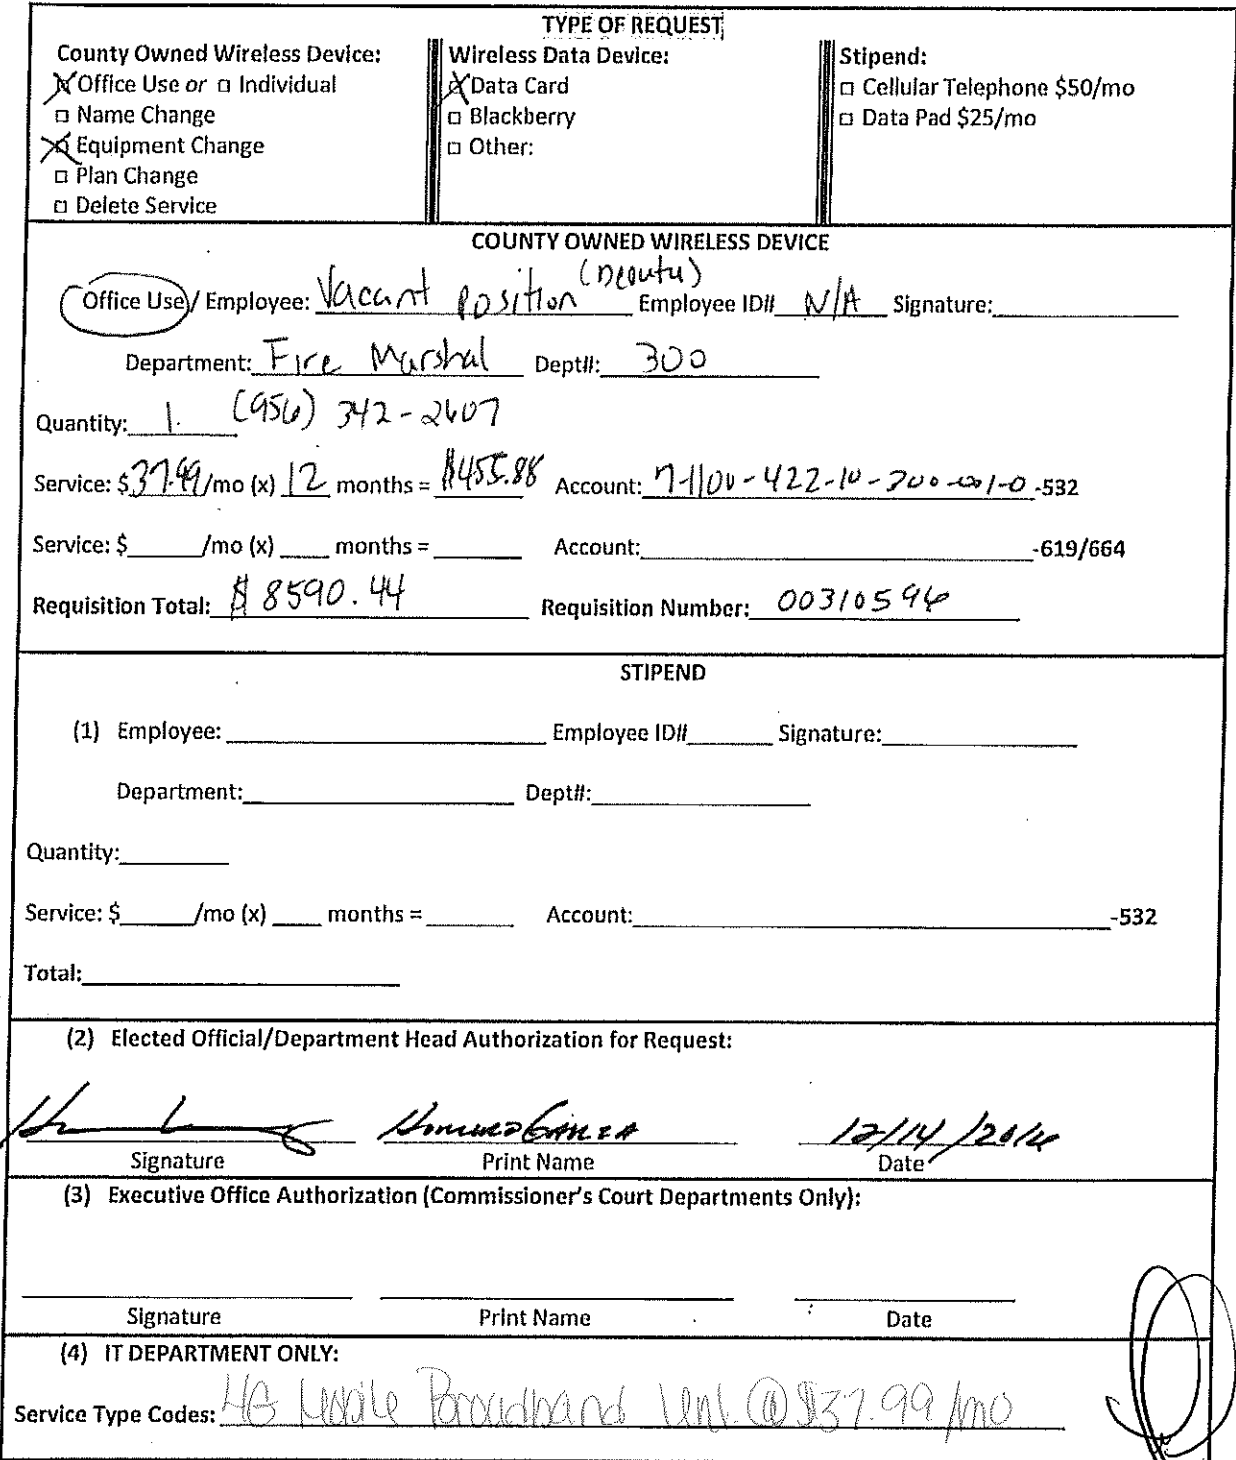 TYPE OF REQUEST
County Owned Wireless Device: Wireless Data Device: Stipend:
Office Use or □ Individual Data Card □ Cellular Telephone $50/mo
□ Name Change □ Blackberry □ Data Pad $25/mo
Equipment Change □ Other:
□ Plan Change
□ Delete Service
COUNTY OWNED WIRELESS DEVICE
Office Use / Employee: Vacant Position (Deputy) Employee ID# N/A Signature:
Department: Fire Marshal Dept#: 300
Quantity: 1. (956) 342-2607
Service: $37.99/mo (x) 12 months = $455.88 Account: 7-1100-422-10-300-001-0-532
Service: $ /mo (x) months = Account: -619/664
Requisition Total: $8590.44 Requisition Number: 00310596
STIPEND
(1) Employee: Employee ID# Signature:
Department: Dept#:
Quantity:
Service: $ /mo (x) months = Account: -532
Total:
(2) Elected Official/Department Head Authorization for Request:
Garza 12/14/2016
Signature Print Name Date
(3) Executive Office Authorization (Commissioner's Court Departments Only):
Signature Print Name Date
(4) IT DEPARTMENT ONLY:
Service Type Codes: 4G Mobile Broadband Unl. @ $37.99/mo